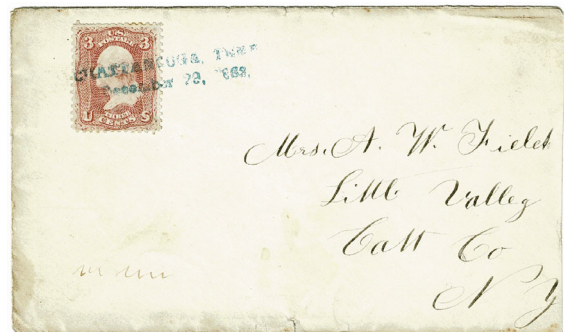 3 U.S. 3
CHATTANOOGA, TENN
December 28, 1863.
U CENTS S
Mrs. A. W. Field
Little Valley
Catt Co
N Y